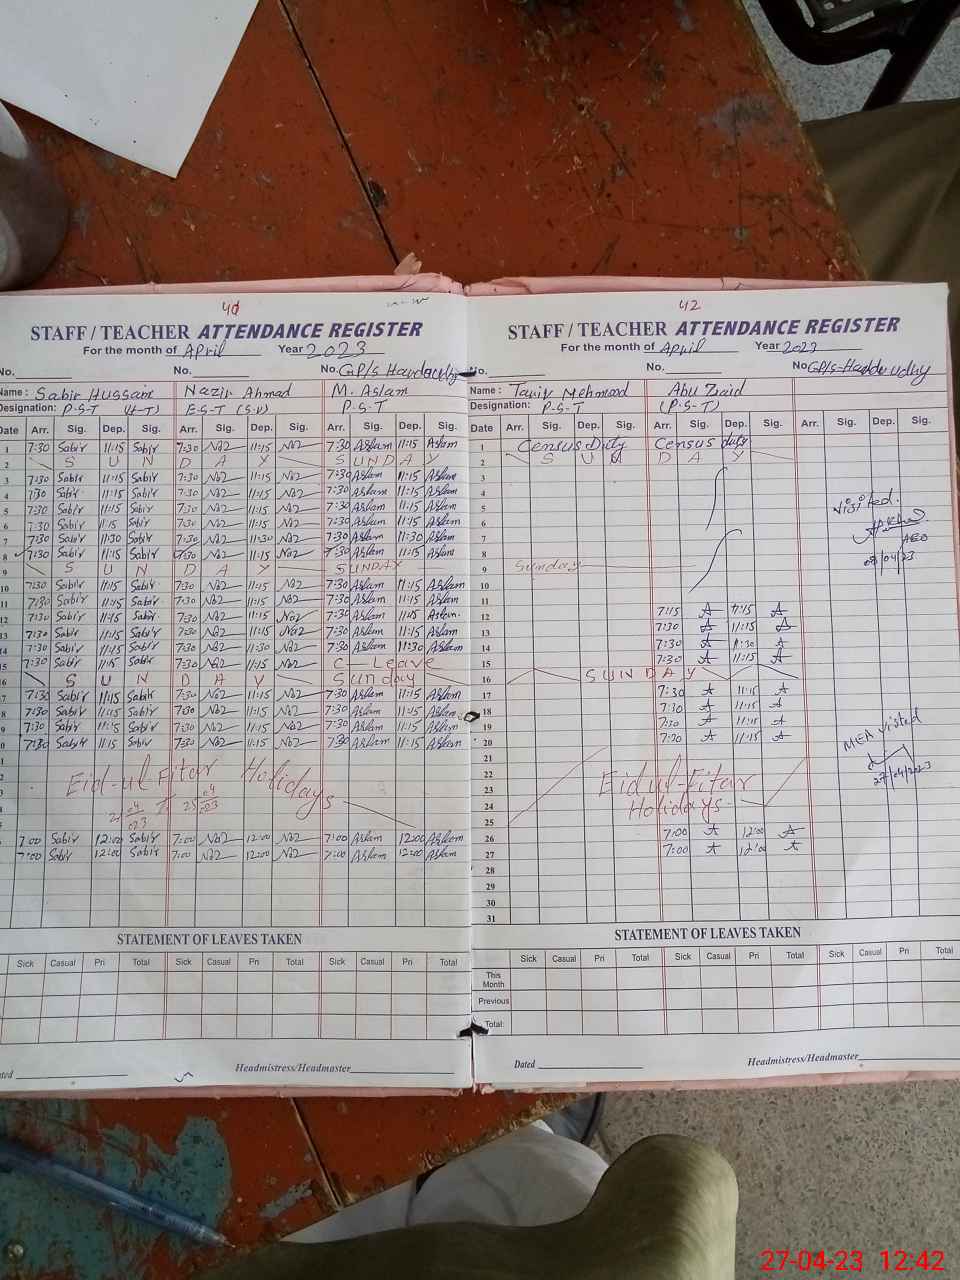 40
STAFF / TEACHER ATTENDANCE REGISTER
For the month of April Year 2023
No. No. No. GP/s
Name: Sabir Hussain Nazir Ahmad M. Aslam
Designation: P.S.T (H-T) E.S.T P.S.T
Date Arr. Sig. Dep. Sig. Arr. Sig. Dep. Sig. Arr. Sig. Dep. Sig.
1 7:30 Sabir 11:15 Sabir 7:30 11:15 7:30 Aslam 11:15 Aslam
2 S U N D A Y S U N D A Y
3 7:30 Sabir 11:15 Sabir 7:30 11:15 7:30 Aslam 11:15 Aslam
4 7:30 Sabir 11:15 Sabir 7:30 11:15 7:30 Aslam 11:15 Aslam
5 7:30 Sabir 11:15 Sabir 7:30 11:15 7:30 Aslam 11:15 Aslam
6 7:30 Sabir 11:15 Sabir 7:30 11:15 7:30 Aslam 11:15 Aslam
7 7:30 Sabir 11:30 Sabir 7:30 11:30 7:30 Aslam 11:30 Aslam
8 7:30 Sabir 11:15 Sabir 7:30 11:15 7:30 Aslam 11:15 Aslam
9 S U N D A Y SUNDAY
10 7:30 Sabir 11:15 Sabir 7:30 11:15 7:30 Aslam 11:15 Aslam
11 7:30 Sabir 11:15 Sabir 7:30 11:15 7:30 Aslam 11:15 Aslam
12 7:30 Sabir 11:15 Sabir 7:30 11:15 7:30 Aslam 11:15 Aslam
13 7:30 Sabir 11:15 Sabir 7:30 11:15 7:30 Aslam 11:15 Aslam
14 7:30 Sabir 11:15 Sabir 7:30 11:30 7:30 Aslam 11:30 Aslam
15 7:30 Sabir 11:15 Sabir 7:30 11:15 C-Leave
16 S U N D A Y Sunday
17 7:30 Sabir 11:15 Sabir 7:30 11:15 7:30 Aslam 11:15 Aslam
8 7:30 Sabir 11:15 Sabir 7:30 11:15 7:30 Aslam 11:15 Aslam
9 7:30 Sabir 11:15 Sabir 7:30 11:15 7:30 Aslam 11:15 Aslam
0 7:30 Sabir 11:15 Sabir 7:30 11:15 7:30 Aslam 11:15 Aslam
Eid-ul-Fitar Holidays
7:00 Sabir 12:00 Sabir 7:00 12:00 7:00 Aslam 12:00 Aslam
7:00 Sabir 12:00 Sabir 7:00 12:00 7:00 Aslam 12:00 Aslam
STATEMENT OF LEAVES TAKEN
Sick Casual Pri Total Sick Casual Pri Total Sick Casual Pri Total
Headmistress/Headmaster
42
STAFF / TEACHER ATTENDANCE REGISTER
For the month of April Year 2023
No. No. No. GP/s
Name: Tariq Mehmood Abu Zaid
Designation: P.S.T (P.S.T)
Date Arr. Sig. Dep. Sig. Arr. Sig. Dep. Sig. Arr. Sig. Dep. Sig.
1 Census Duty Census duty
2 S U N D A Y
3
4
5 visited.
6
7 AEO
8 08/04/23
9 Sunday
10
11
12 7:15 A A
13 7:30 A 11:15 A
14 7:30 A 11:30 A
15 7:30 A 11:15 A
16 S U N D A Y
17 7:30 A 11:15 A
18 7:30 A 11:15 A
19 7:30 A 11:15 A
20 7:30 A 11:15 A
MEA visited
21
22 Eid ul-Fitar 27/04/2023
23
24 Holidays
25
26 7:00 A 12:00 A
27 7:00 A 12:00 A
28
29
30
31
STATEMENT OF LEAVES TAKEN
Sick Casual Pri Total Sick Casual Pri Total Sick Casual Pri Total
This Month
Previous
Total:
Dated Headmistress/Headmaster
27-04-23 12:42